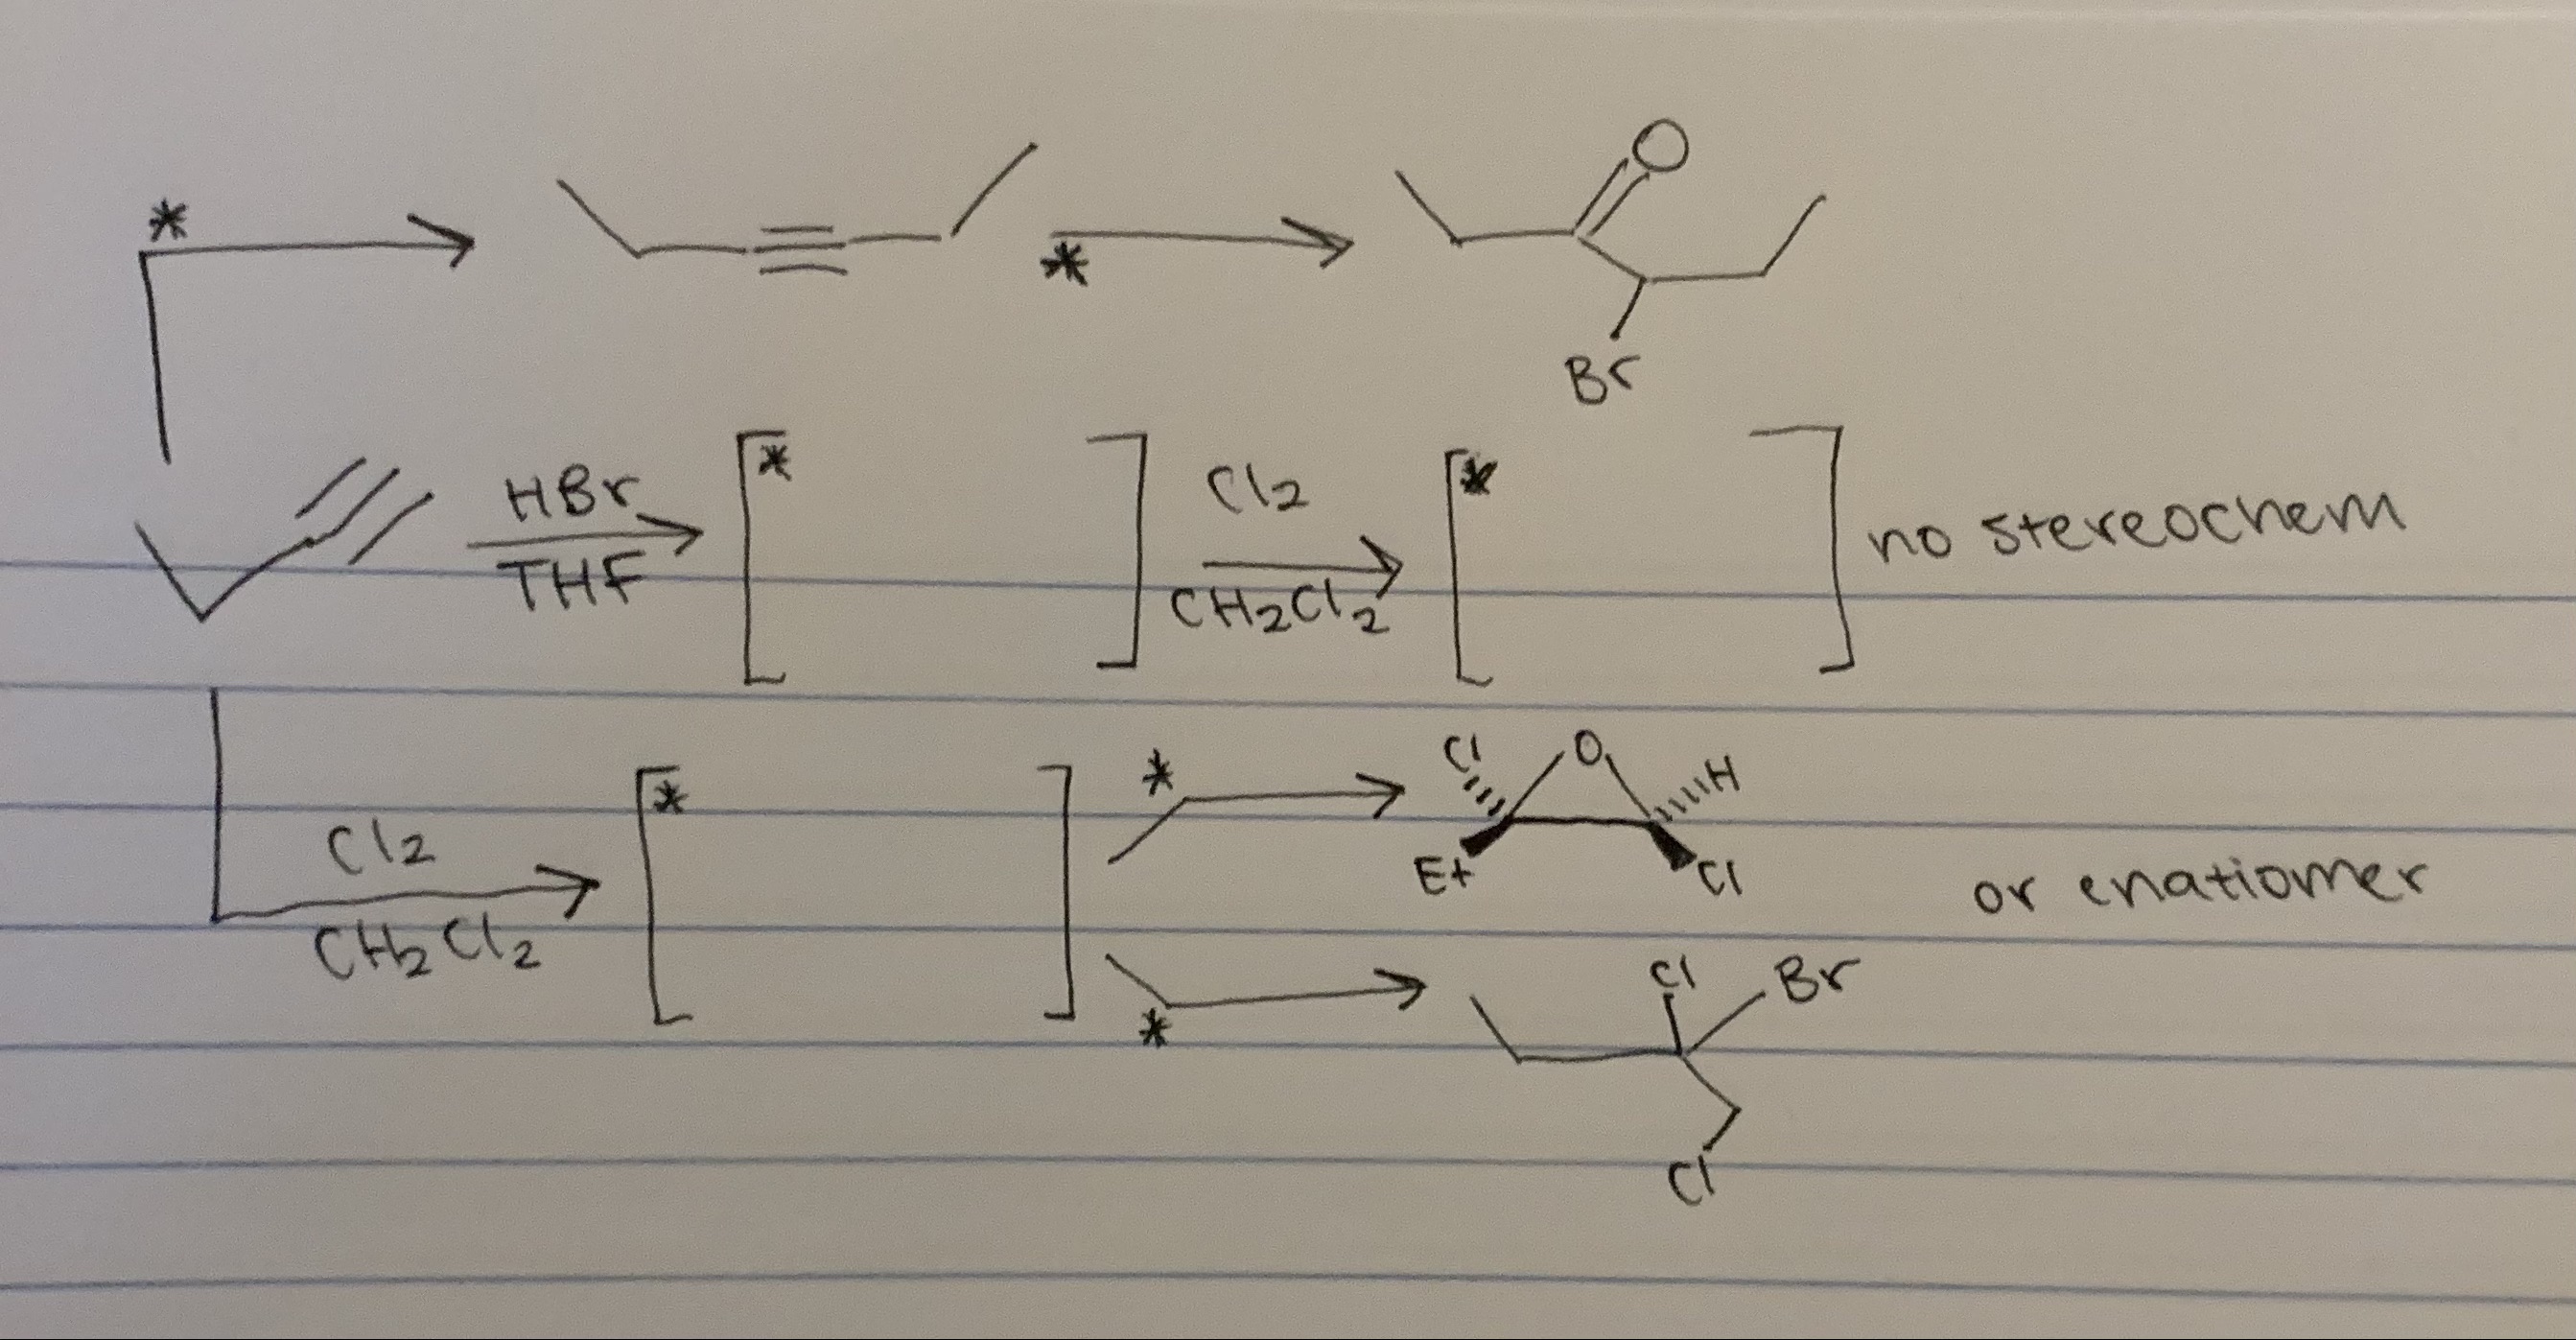 *
*
O
Br
HBr
THF
*
Cl2
CH2Cl2
*
no stereochem
Cl2
CH2Cl2
*
*
Cl
O
H
Et
Cl
or enatiomer
*
Cl
Br
Cl